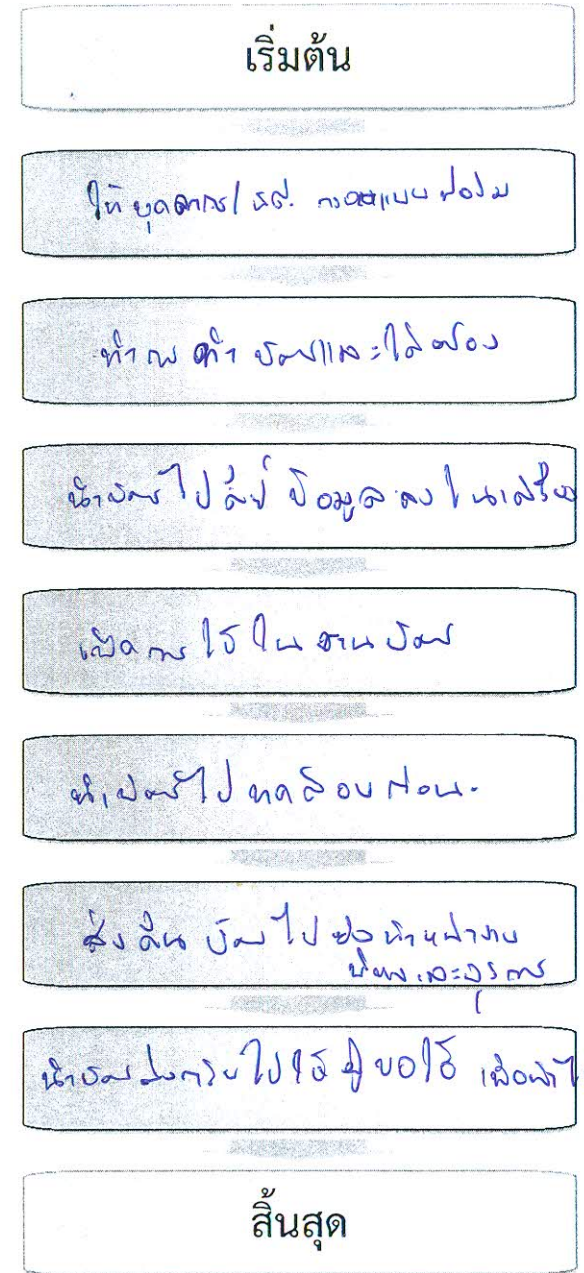 เริ่มต้น
ให้บุคลากร/ นศ. กรอกแบบฟอร์ม
ทำการ ทำ บัตรและใส่ซอง
นำบัตรไป คีย์ ข้อมูล ลง ในเครื่อง
เปิด การ ใช้ ใน งาน บัตร
นำบัตรไป ทดสอบ ก่อน.
ส่ง คืน บัตร ไป หัวหน้างาน
และธุรการ
นำบัตร ส่งกลับ ไปให้ ผู้ ขอใช้ เพื่อนำไ
สิ้นสุด